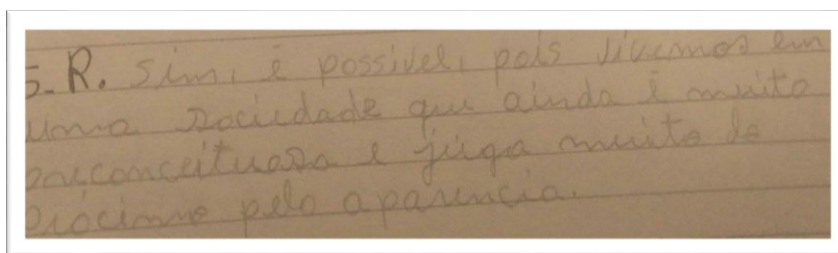 5-R. Sim, é possivel, pois vivemos em
uma sociedade que ainda é muito
preconceituosa e juga muito do
prócimo pelo aparencia.